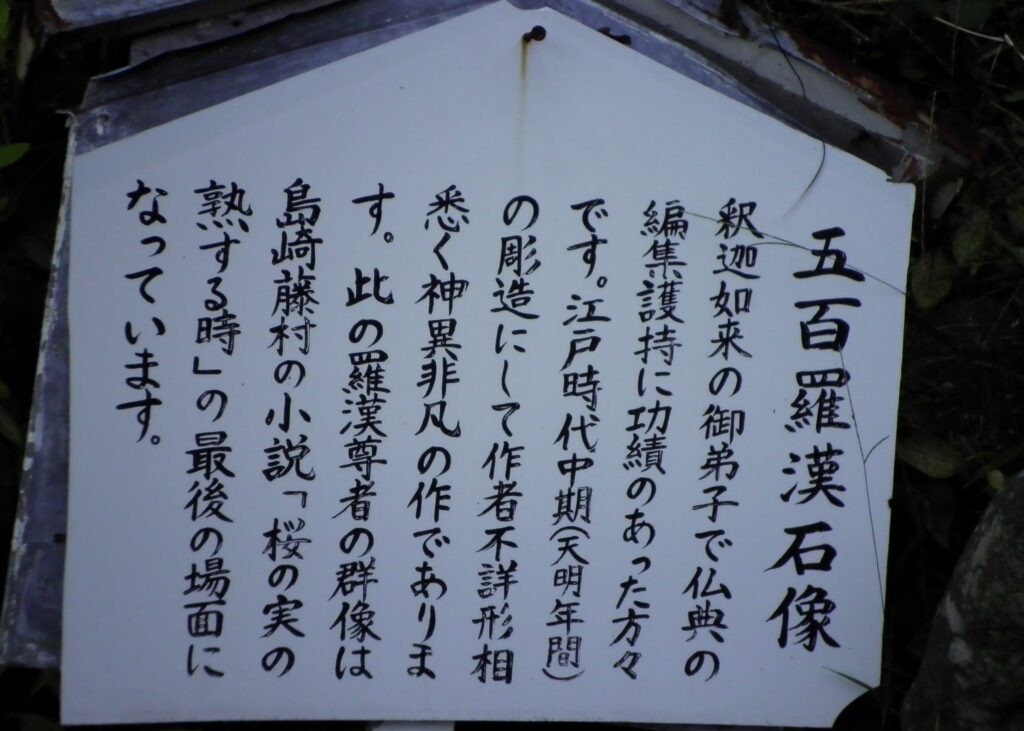 五百羅漢石像
釈迦如来の御弟子で仏典の
編集護持に功績のあった方々
です。江戸時代中期(天明年間)
の彫造にして作者不詳形相
悉く神異非凡の作でありま
す。此の羅漢尊者の群像は
島崎藤村の小説「桜の実の
熟する時」の最後の場面に
なっています。